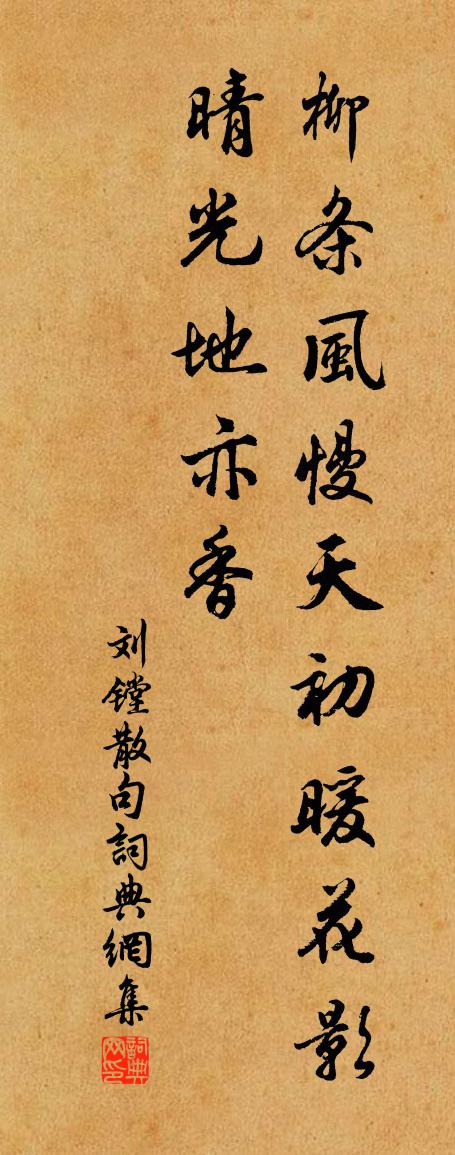 柳条風慢天初暖花影
晴光地亦香
刘镗散句詞典網集
詞典
网印